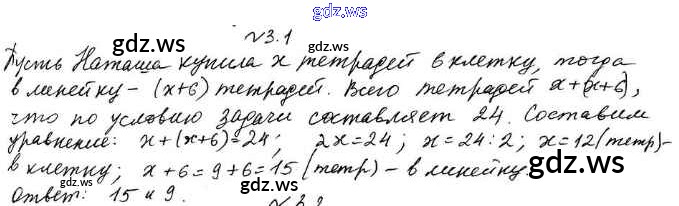 gdz.ws
№3.1
gdz.ws
Пусть Наташа купила x тетрадей в клетку, тогда
в линейку – (x+6) тетрадей. Всего тетрадей x+(x+6),
что по условию задачи составляет 24. Составим
уравнение: x+(x+6)=24; 2x=24; x=24:2; x=12(тетр)–
в клетку; x+6=9+6=15 (тетр) – в линейку
gdz.ws
gdz.ws
Ответ: 15 и 9.
gdz.ws